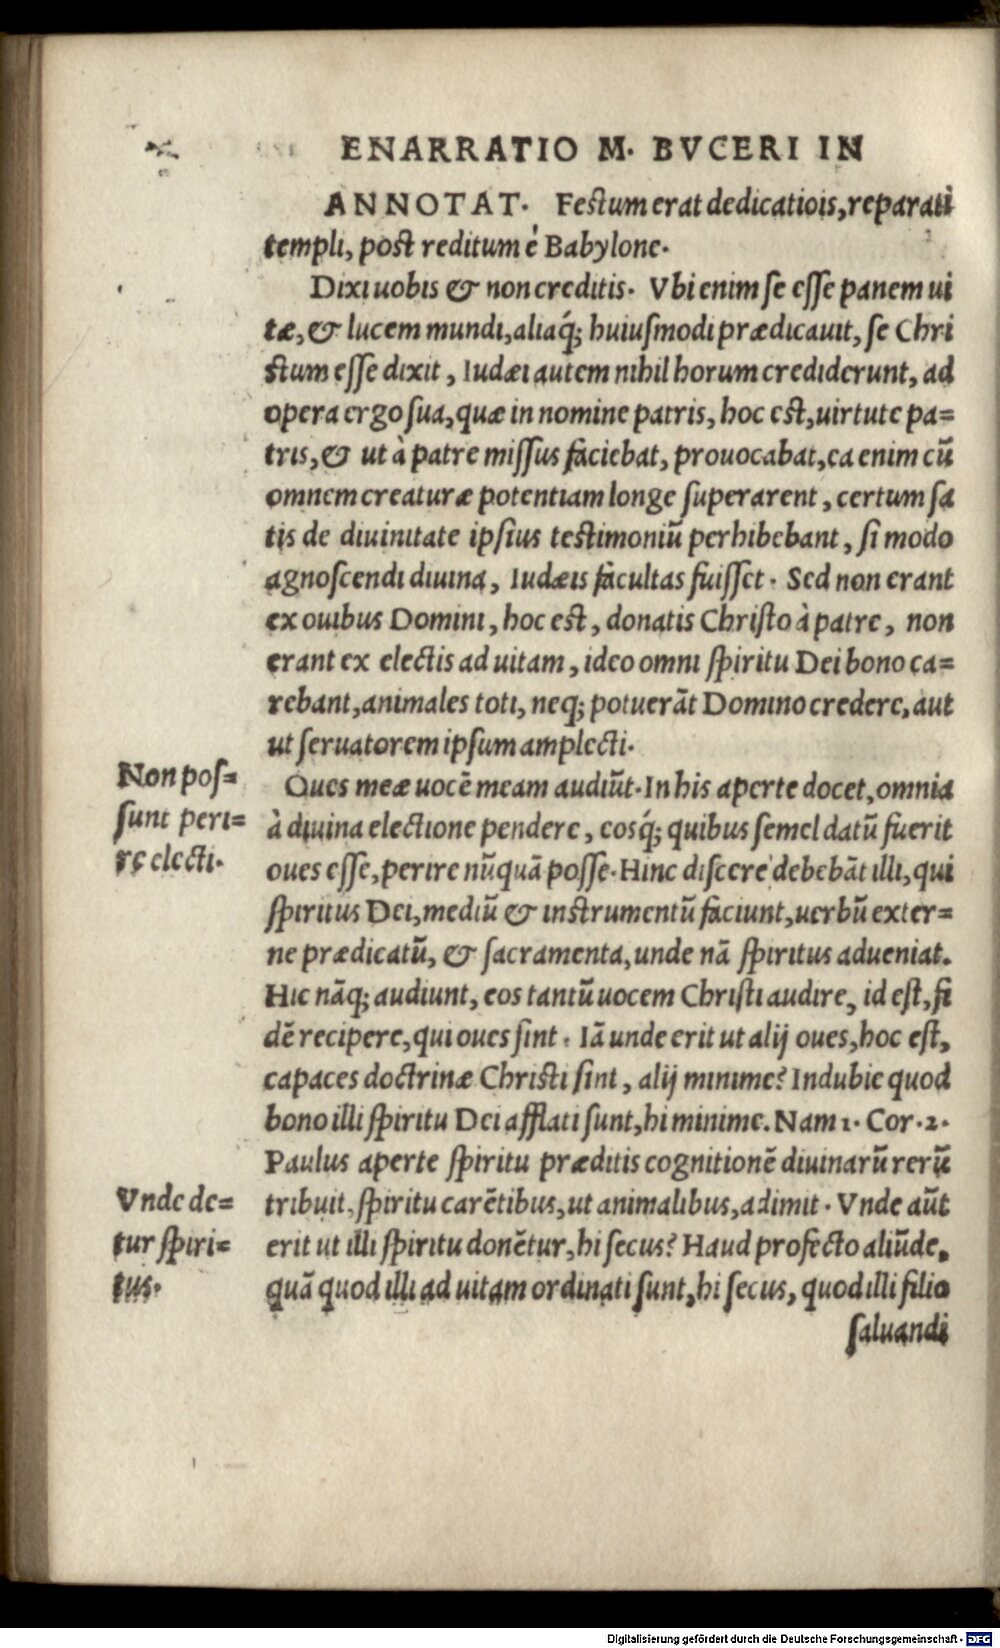 ENARRATIO M. BVCERI IN
ANNOTAT. Festum erat dedicatiois, reparati
templi, post reditum è Babylone.
Dixi uobis & non creditis. Vbi enim se esse panem ui
tæ, & lucem mundi, aliaq́; huiusmodi prædicauit, se Chri
stum esse dixit, Iudæi autem nihil horum crediderunt, ad
opera ergo sua, quæ in nomine patris, hoc est, uirtute pa=
tris, & ut à patre missus faciebat, prouocabat, ea enim cū
omnem creaturæ potentiam longe superarent, certum sa
tis de diuinitate ipsius testimoniū perhibebant, si modo
agnoscendi diuina, Iudæis facultas fuisset. Sed non erant
ex ouibus Domini, hoc est, donatis Christo à patre, non
erant ex electis ad uitam, ideo omni spiritu Dei bono ca=
rebant, animales toti, neq; potuerāt Domino credere, aut
ut seruatorem ipsum amplecti.
Non pos=
sunt peri=
re electi.
Oues meæ uocē meam audiūt. In his aperte docet, omnia
à diuina electione pendere, eosq́; quibus semel datū fuerit
oues esse, perire nūquā posse. Hinc discere debebāt illi, qui
spiritus Dei, mediū & instrumentū faciunt, uerbū exter=
ne prædicatū, & sacramenta, unde nā spiritus adueniat.
Hic nāq; audiunt, eos tantū uocem Christi audire, id est, fi
dē recipere, qui oues sint. Iā unde erit ut alij oues, hoc est,
capaces doctrinæ Christi sint, alij minime? Indubie quod
bono illi spiritu Dei afflati sunt, hi minime. Nam 1. Cor. 2.
Paulus aperte spiritu præditis cognitionē diuinarū rerū
Vnde de=
tur spiri=
tus.
tribuit, spiritu carētibus, ut animalibus, adimit. Vnde aūt
erit ut illi spiritu donētur, hi secus? Haud profecto aliūde,
quā quod illi ad uitam ordinati sunt, hi secus, quod illi filio
saluandi
Digitalisierung gefördert durch die Deutsche Forschungsgemeinschaft - DFG